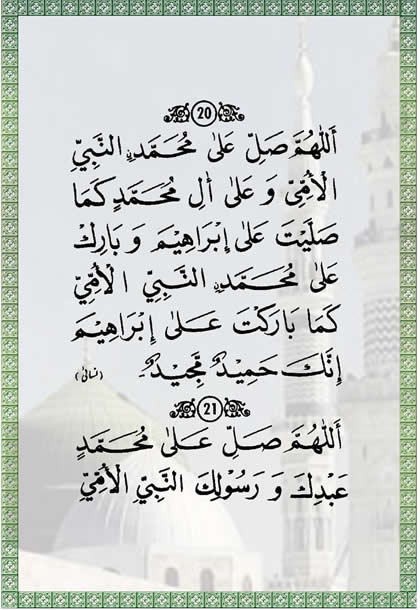 20
اَللّٰهُمَّ صَلِّ عَلٰى مُحَمَّدِنِ النَّبِيِّ
الْاُمِّيِّ وَ عَلٰى اٰلِ مُحَمَّدٍ كَمَا
صَلَّيْتَ عَلٰى اِبْرَاهِيْمَ وَ بَارِكْ
عَلٰى مُحَمَّدِنِ النَّبِيِّ الْاُمِّيِّ
كَمَا بَارَكْتَ عَلٰى اِبْرَاهِيْمَ
اِنَّكَ حَمِيْدٌ مَّجِيْدٌ۔ (نسائی)
21
اَللّٰهُمَّ صَلِّ عَلٰى مُحَمَّدٍ
عَبْدِكَ وَ رَسُوْلِكَ النَّبِيِّ الْاُمِّيِّ